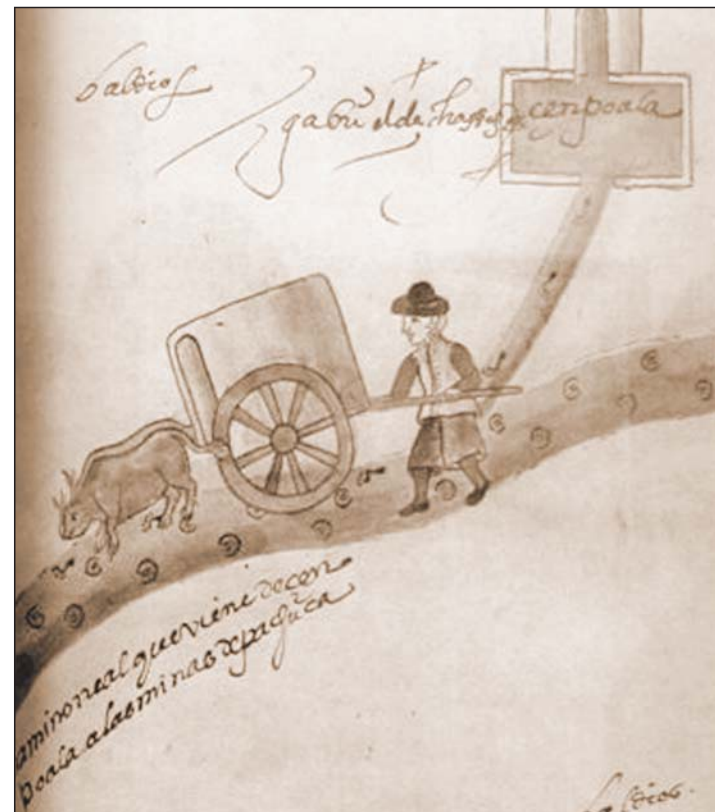 baldios
cenpoala
amino real que viene de cen
poala a las minas de pachuca
baldios